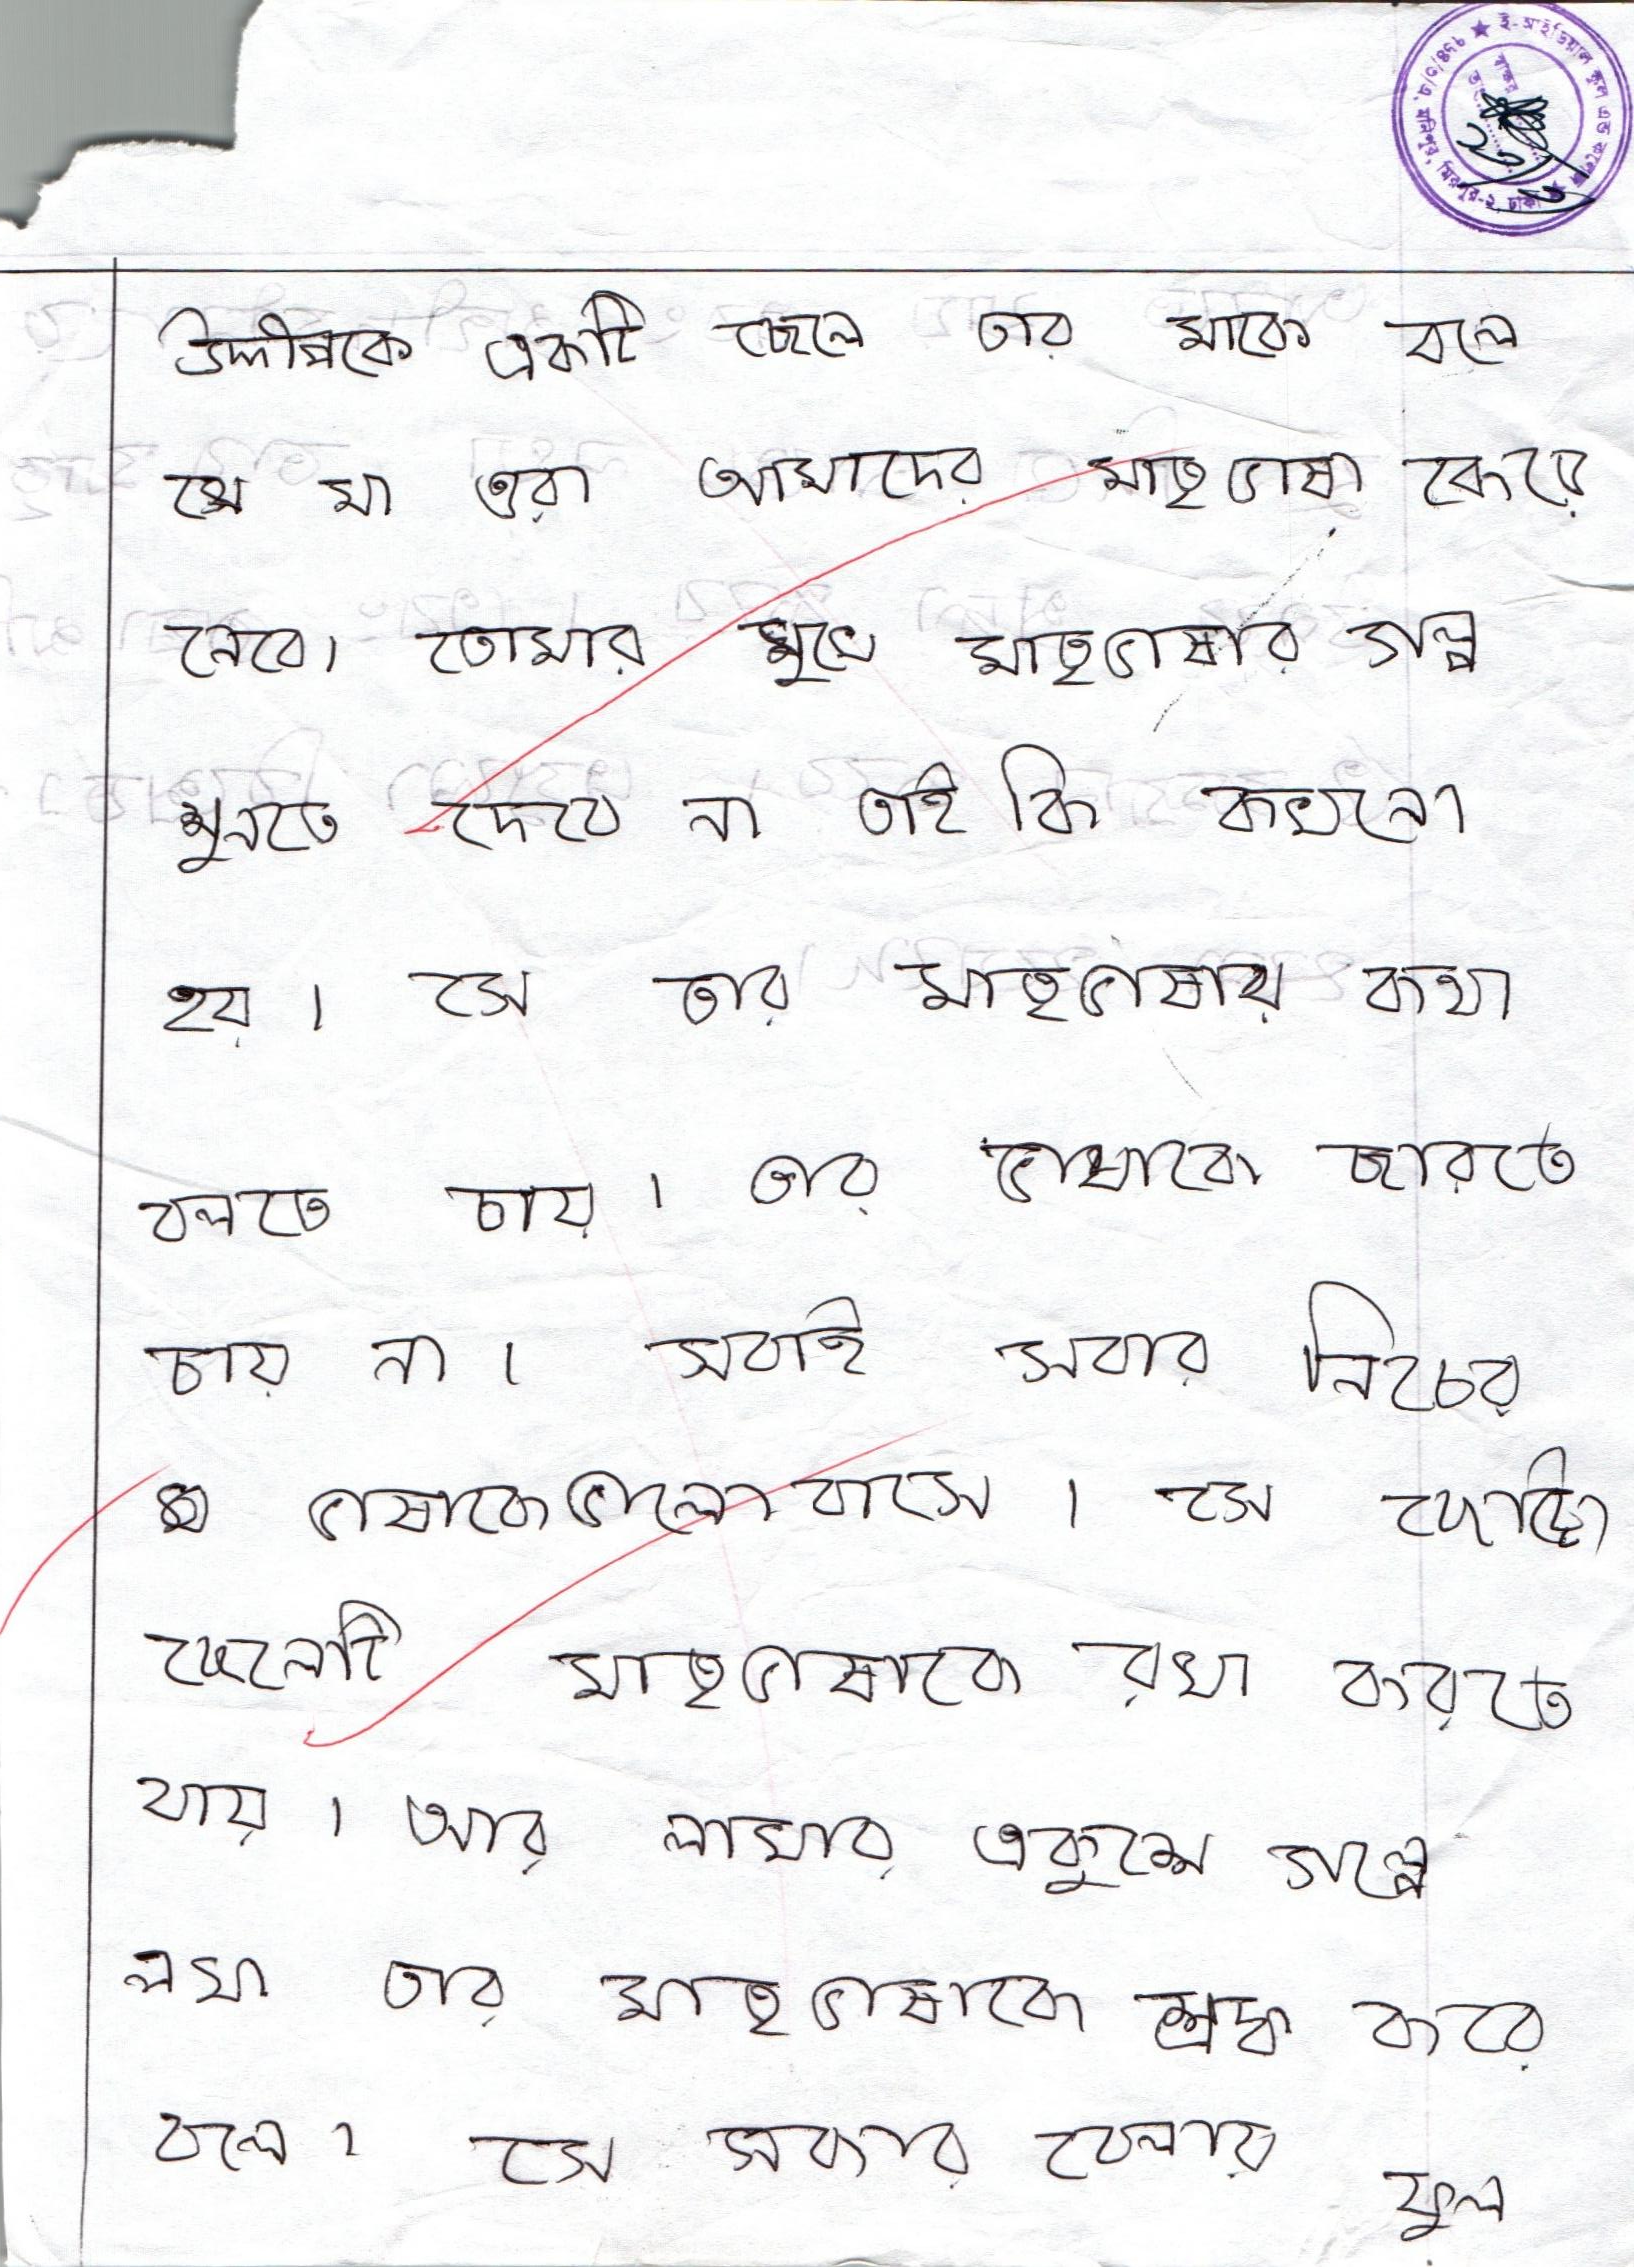 ই-আইডিয়াল স্কুল এন্ড কলেজ
উদ্দীপকে একটি ছেলে তার মাকে বলে
যে মা ওরা আমাদের মাতৃভাষা কেরে
নেবে। তোমার মুখে মাতৃভাষার গল্প
শুনতে দেবে না তাই কি কখনো
হয়। সে তার মাতৃভাষায় কথা
বলতে চায়। তার ভাষাকে ছারতে
চায় না। সবাই সবার নিচের
ভাষাকে ভালো বাসে। সে ছোট্টো
ছেলেটি মাতৃভাষাকে রখা করতে
যায়। আর লাখার একুশে গল্পে
লখা তার মাতৃভাষাকে শ্রদ্ধ করে
বলে। সে সকার বেলায় ফুল